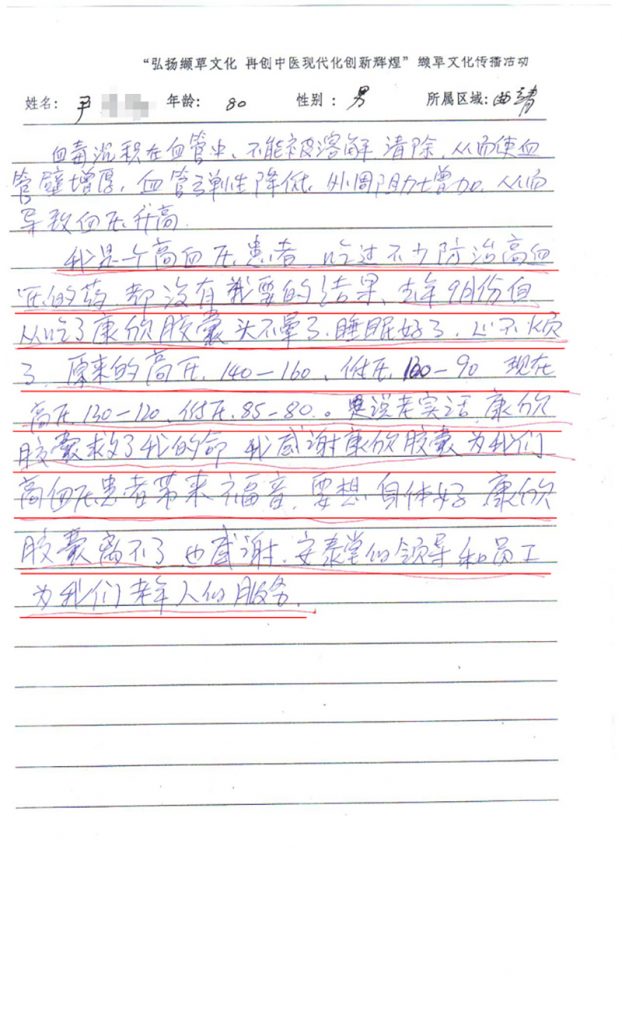 “弘扬缬草文化 再创中医现代化创新辉煌” 缬草文化传播活动
姓名: 尹 年龄: 80 性别: 男 所属区域: 曲靖
血毒沉积在血管中、不能被溶解清除、从而使血
管壁增厚,血管弹性降低、外周阻力增加、从而
导致血压升高.
我是一个高血压患者、吃过不少防治高血
压的药、都没有我要的结果、去年9月份
从吃了康欣胶囊头不晕了、睡眠好了、心不烦
了、原来的高压、140-160、低压、100-90 现在
高压、130-120、低压、85-80。 说老实话、康欣
胶囊救了我的命、我感谢康欣胶囊为我们
高血压患者带来福音、要想身体好 康欣
胶囊离不了 也感谢、安泰堂的领导和员工
为我们老年人的服务.